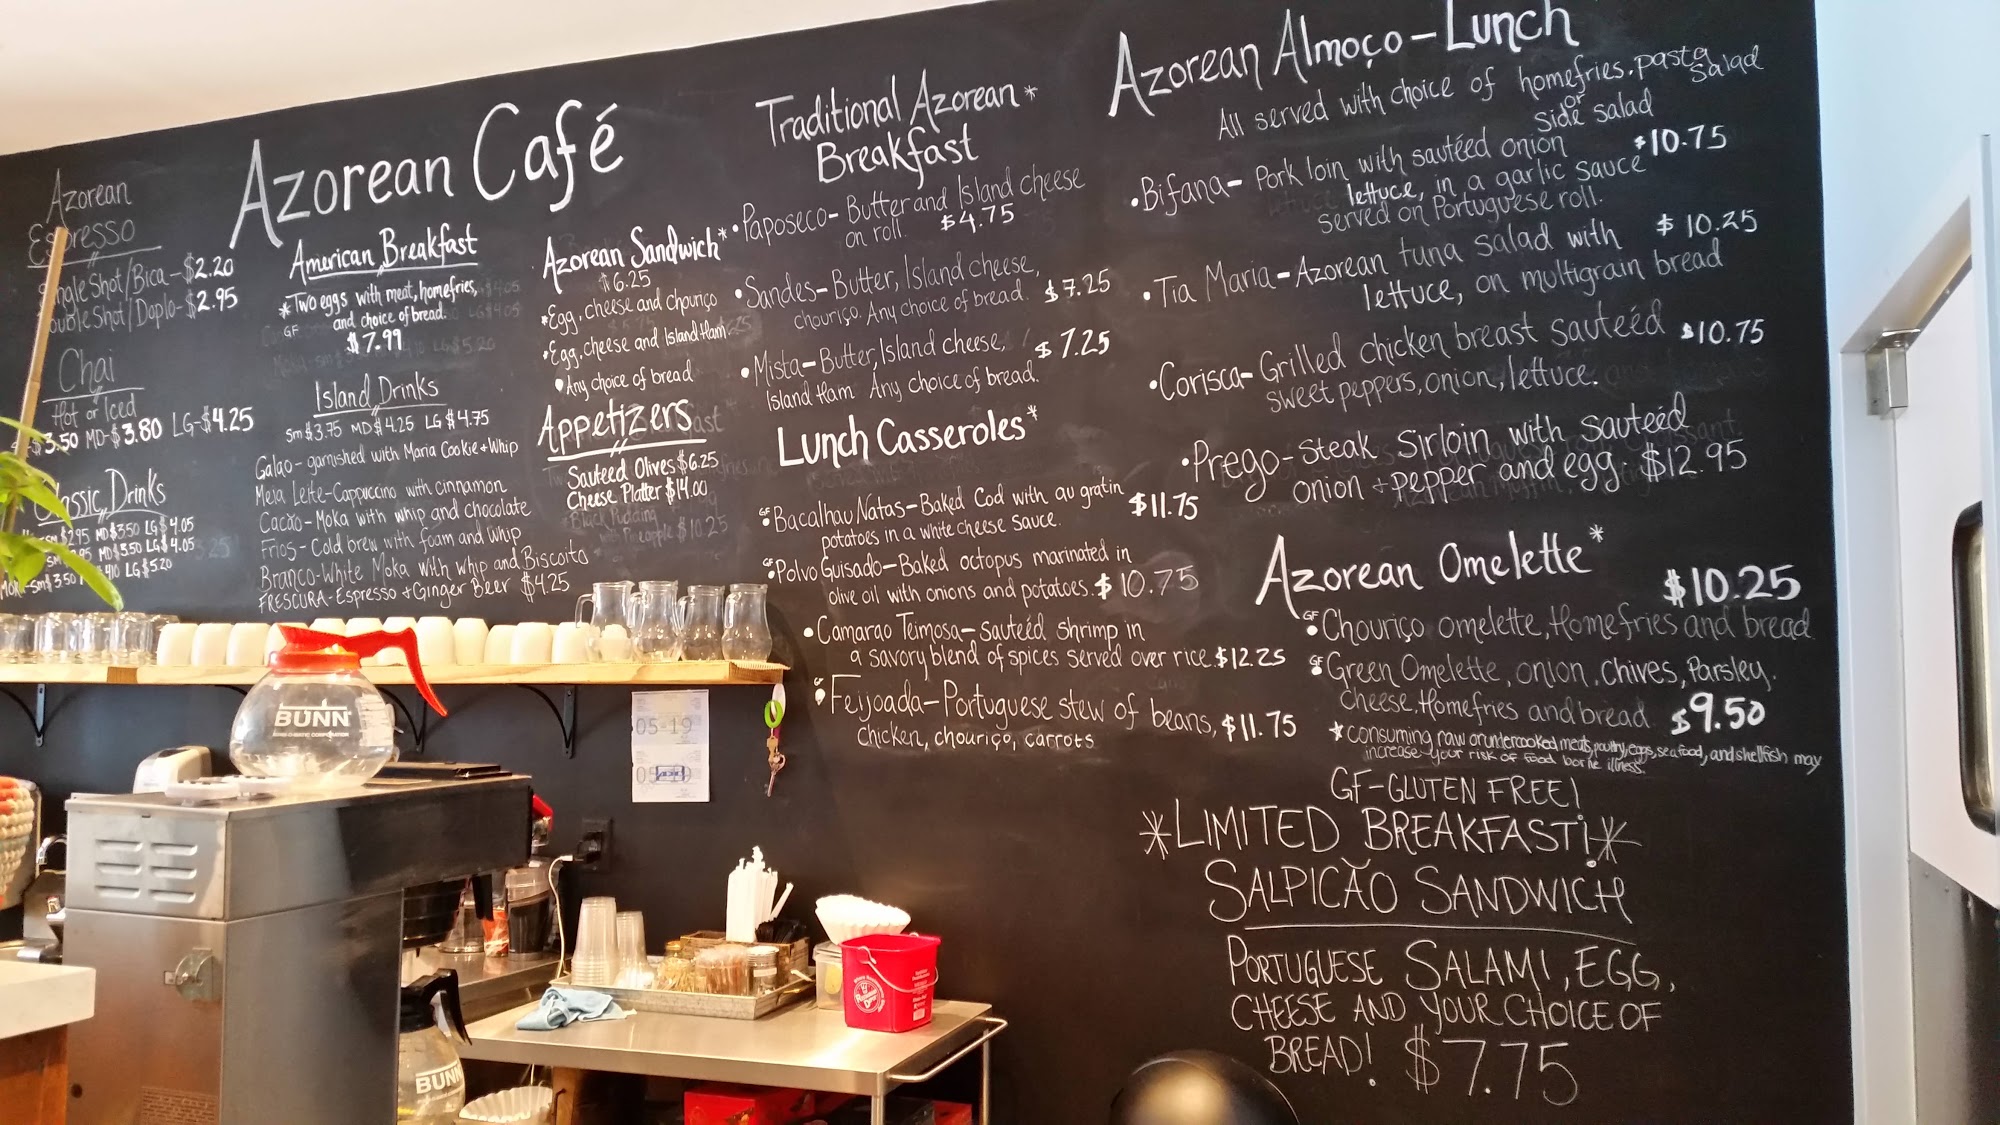 Azorean
Espresso
Shot/Bica-$2.20
Shot/Doplo-$2.95
Chai
Hot or Iced
$3.50 MD-$3.80 LG-$4.25
Classic Drinks
sm $2.95 MD $3.50 LG $4.05
MD $3.50 LG $4.05
sm $3.50 LG $5.20
Azorean Café
American Breakfast
*Two eggs with meat, homefries,
GF and choice of bread.
$7.99
Island Drinks
sm $3.75 MD $4.25 LG $4.75
Galao- garnished with Maria Cookie + Whip
Meia Leite-Cappuccino with cinnamon
Cacao-Moka with whip and chocolate
Frios-Cold brew with foam and whip
Branco-White Moka with whip and Biscoito
FRESCURA-Espresso + Ginger Beer $4.25
Azorean Sandwich*
$6.25
•Egg, cheese and chouriço
•Egg, cheese and Island Ham
•Any choice of bread
Appetizers
Sauteed Olives $6.25
Cheese Platter $14.00
Black Pudding
with Pineapple $10.25
Traditional Azorean*
Breakfast
•Paposeco-Butter and Island cheese
on roll. $4.75
•Sandes-Butter, Island cheese,
chouriço. Any choice of bread. $7.25
•Mista-Butter, Island cheese, $7.25
Island Ham Any choice of bread.
Lunch Casseroles*
GF •Bacalhau Natas-Baked Cod with au gratin
potatoes in a white cheese sauce. $11.75
GF •Polvo Guisado-Baked octopus marinated in
olive oil with onions and potatoes. $10.75
•Camarao Teimosa-sautéed shrimp in
a savory blend of spices served over rice. $12.25
GF •Feijoada-Portuguese stew of beans, $11.75
chicken, chouriço, carrots
Azorean Almoço-Lunch
All served with choice of homefries, pasta salad
or
side salad
•Bifana-Pork loin with sautéed onion $10.75
lettuce, in a garlic sauce
served on Portuguese roll.
•Tia Maria-Azorean tuna salad with $10.25
lettuce, on multigrain bread
•Corisca-Grilled chicken breast sautéed $10.75
sweet peppers, onion, lettuce.
•Prego-Steak Sirloin with sautéed
onion + pepper and egg $12.95
Azorean Omelette*
$10.25
GF •Chouriço omelette, Homefries and bread
GF •Green Omelette, onion, chives, Parsley,
cheese, Homefries and bread $9.50
*consuming raw or undercooked meats, poultry, eggs, seafood, and shellfish may
increase your risk of food borne illness.
GF-GLUTEN FREE!
*LIMITED BREAKFAST!*
SALPICÃO SANDWICH
PORTUGUESE SALAMI, EGG,
CHEESE AND YOUR CHOICE OF
BREAD! $7.75
BUNN
05-19
BUNN